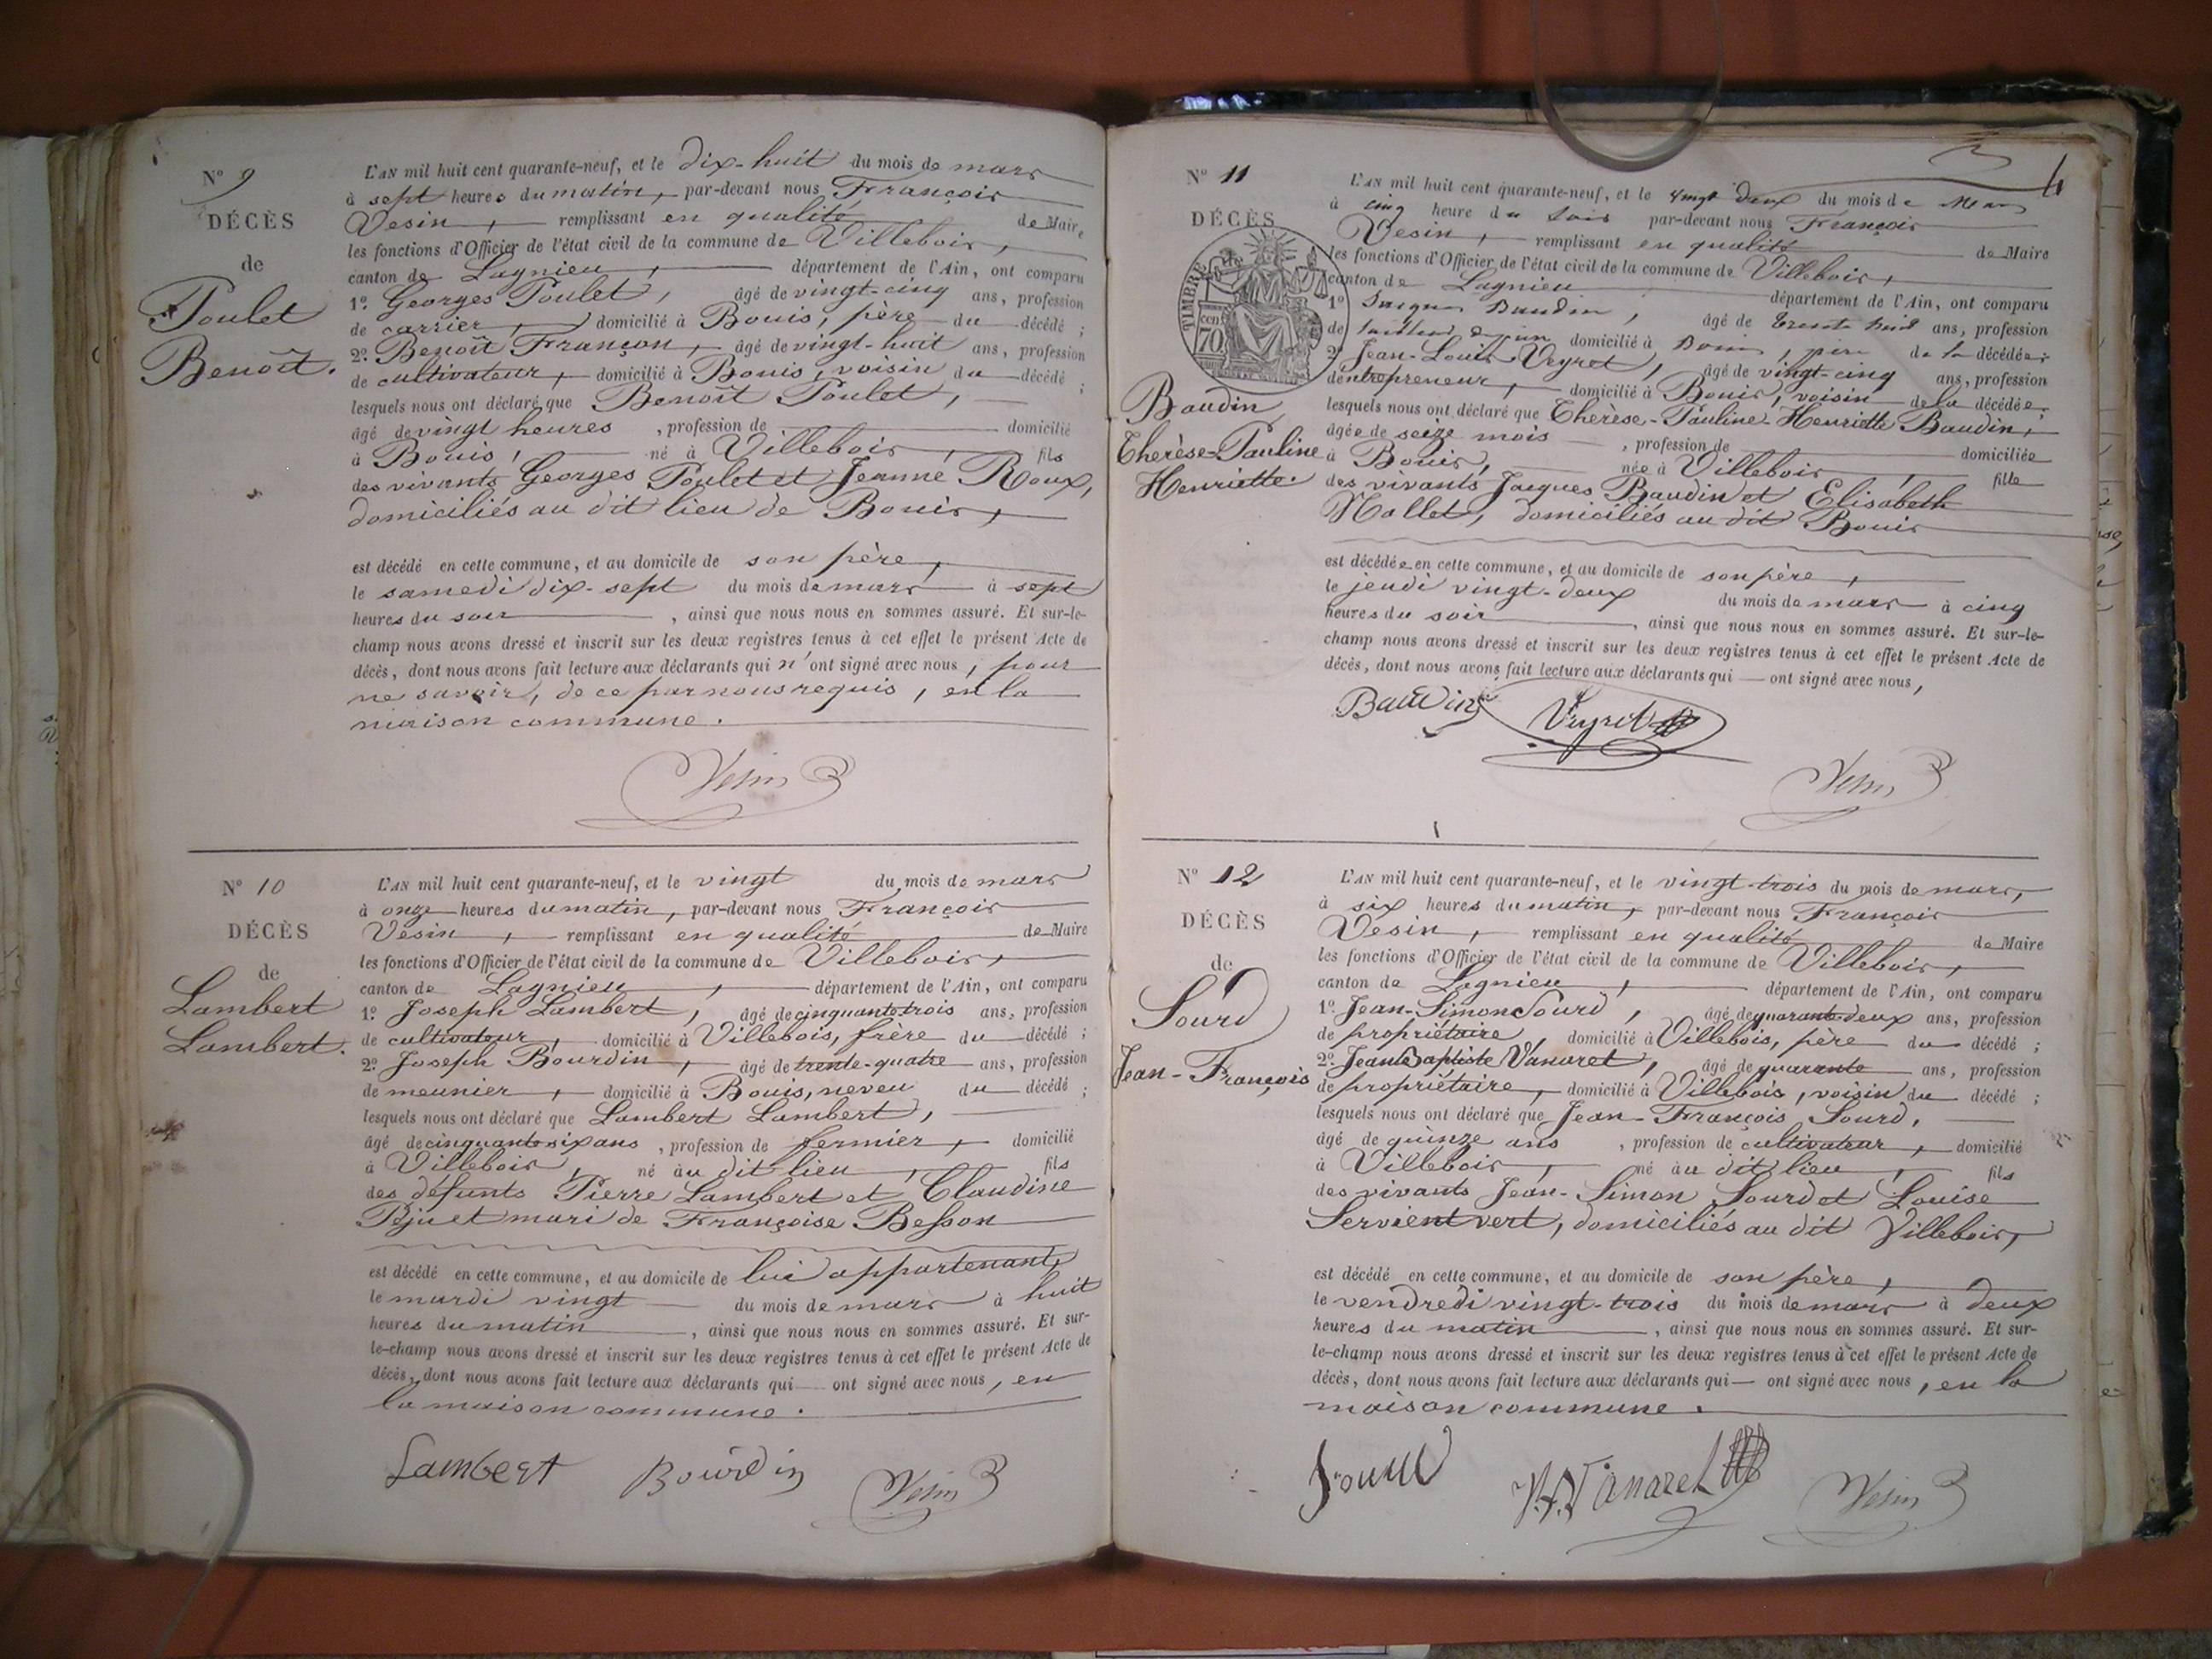 N° 9
DÉCÈS
de
Poulet
Benoît.
L'AN mil huit cent quarante-neuf, et le dix-huit du mois de mars
à sept heures du matin, par-devant nous François
Vesin, remplissant en qualité de Maire
les fonctions d'Officier de l'état civil de la commune de Villebois,
canton de Lagnieu, département de l'Ain, ont comparu
1° Georges Poulet, âgé de vingt-cinq ans, profession
de carrier, domicilié à Bouis, père du décédé ;
2° Benoît Françon, âgé de vingt-huit ans, profession
de cultivateur, domicilié à Bouis, voisin du décédé ;
lesquels nous ont déclaré que Benoît Poulet,
âgé de vingt heures, profession de domicilié
à Bouis, né à Villebois, fils
des vivants Georges Poulet et Jeanne Roux,
domiciliés au dit lieu de Bouis,
est décédé en cette commune, et au domicile de son père,
le samedi dix-sept du mois de mars à sept
heures du soir, ainsi que nous nous en sommes assuré. Et sur-le-
champ nous avons dressé et inscrit sur les deux registres tenus à cet effet le présent Acte de
décès, dont nous avons fait lecture aux déclarants qui n'ont signé avec nous, pour
ne savoir, de ce par nous requis, en la
maison commune.
Vesin
N° 10
DÉCÈS
de
Lambert
Lambert.
L'AN mil huit cent quarante-neuf, et le vingt du mois de mars
à onze heures du matin, par-devant nous François
Vesin, remplissant en qualité de Maire
les fonctions d'Officier de l'état civil de la commune de Villebois,
canton de Lagnieu, département de l'Ain, ont comparu
1° Joseph Lambert, âgé de cinquante trois ans, profession
de cultivateur, domicilié à Villebois, frère du décédé ;
2° Joseph Bourdin, âgé de trente-quatre ans, profession
de meunier, domicilié à Bouis, neveu du décédé ;
lesquels nous ont déclaré que Lambert Lambert,
âgé de cinquante six ans, profession de fermier, domicilié
à Villebois, né au dit lieu, fils
des défunts Pierre Lambert et Claudine
mari de Françoise Besson
est décédé en cette commune, et au domicile de lui appartenant,
le mardi vingt du mois de mars à huit
heures du matin, ainsi que nous nous en sommes assuré. Et sur-
le-champ nous avons dressé et inscrit sur les deux registres tenus à cet effet le présent Acte de
décès, dont nous avons fait lecture aux déclarants qui ont signé avec nous, en
la maison commune.
Lambert Bourdin Vesin
4
N° 11
DÉCÈS
TIMBRE
70 cent
Baudin
Thérèse-Pauline
Henriette.
L'AN mil huit cent quarante-neuf, et le vingt deux du mois de Mars
à cinq heure du soir par-devant nous François
Vesin, remplissant en qualité de Maire
les fonctions d'Officier de l'état civil de la commune de Villebois,
canton de Lagnieu département de l'Ain, ont comparu
1° Jacques Baudin, âgé de trente huit ans, profession
de tailleur de domicilié à Bouis, père de la décédée ;
2° Jean-Louis Veyret, âgé de vingt-cinq ans, profession
d'entrepreneur, domicilié à Bouis, voisin de la décédée ;
lesquels nous ont déclaré que Thérèse-Pauline-Henriette Baudin,
âgée de seize mois, profession de domiciliée
à Bouis, née à Villebois, fille
des vivants Jacques Baudin et Elisabeth
Mallet, domiciliés au dit Bouis
est décédée en cette commune, et au domicile de son père,
le jeudi vingt-deux du mois de mars à cinq
heures du soir, ainsi que nous nous en sommes assuré. Et sur-le-
champ nous avons dressé et inscrit sur les deux registres tenus à cet effet le présent Acte de
décès, dont nous avons fait lecture aux déclarants qui ont signé avec nous,
Baudin Veyret
Vesin
N° 12
DÉCÈS
de
Sourd
Jean-François
L'AN mil huit cent quarante-neuf, et le vingt-trois du mois de mars,
à six heures du matin, par-devant nous François
Vesin, remplissant en qualité de Maire
les fonctions d'Officier de l'état civil de la commune de Villebois,
canton de Lagnieu, département de l'Ain, ont comparu
1° Jean-Simon Sourd, âgé de quarante-deux ans, profession
de propriétaire, domicilié à Villebois, père du décédé ;
2° Jean Baptiste Vanaret, âgé de quarante ans, profession
de propriétaire, domicilié à Villebois, voisin du décédé ;
lesquels nous ont déclaré que Jean-François Sourd,
âgé de quinze ans, profession de cultivateur, domicilié
à Villebois, né au dit lieu, fils
des vivants Jean-Simon Sourd et Louise
Servient vert, domiciliés au dit Villebois,
est décédé en cette commune, et au domicile de son père,
le vendredi vingt-trois du mois de mars à deux
heures du matin, ainsi que nous nous en sommes assuré. Et sur-
le-champ nous avons dressé et inscrit sur les deux registres tenus à cet effet le présent Acte de
décès, dont nous avons fait lecture aux déclarants qui ont signé avec nous, en la
maison commune.
Sourd Vanaret Vesin